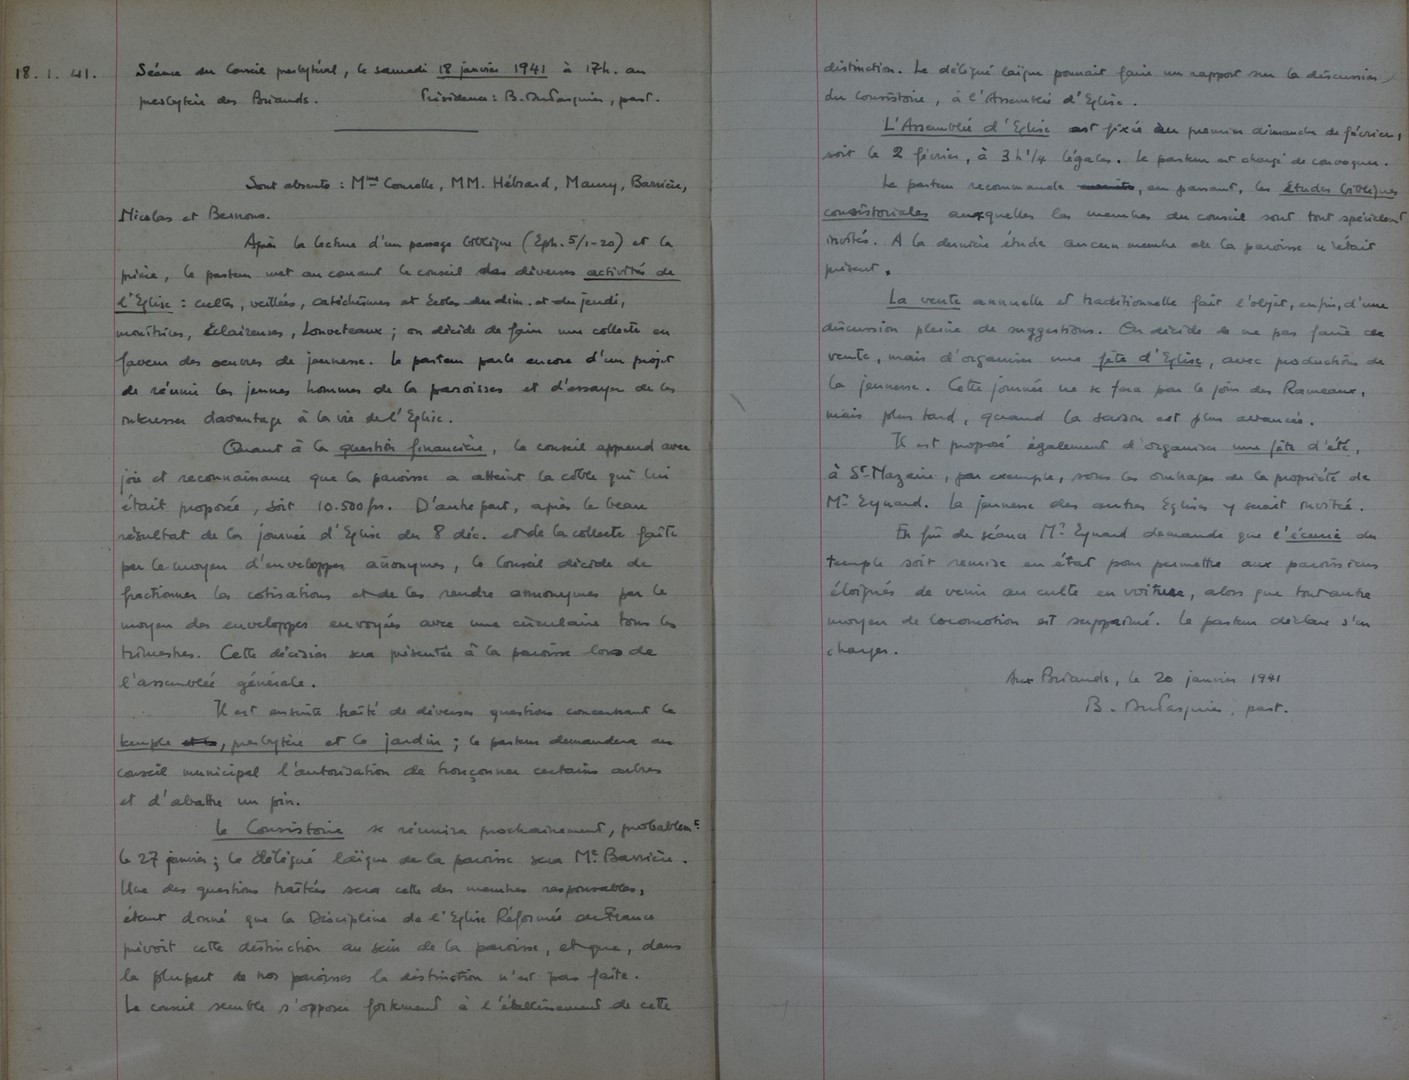 18.1.41.
Séance du Conseil presbytéral, le samedi 18 janvier 1941 à 17h. au
presbytère des Briands. Présidence: B. DuPasquier, past.
Sont absents : Mme Courolle, MM. Hébrard, Maury, Barrière,
Nicolas et Bernous.
Après la lecture d'un passage biblique (Eph. 5/1-20) et la
prière, le pasteur met au courant le conseil des diverses activités de
l'Eglise : cultes, veillées, catéchismes et Ecoles du dim. et du jeudi,
monitrices, Eclaireuses, Louveteaux ; on décide de faire une collecte en
faveur des oeuvres de jeunesse. Le pasteur parle encore d'un projet
de réunir les jeunes hommes de la paroisses et d'essayer de les
intéresser davantage à la vie de l'Eglise.
Quant à la question financière, le conseil apprend avec
joie et reconnaissance que la paroisse a atteint la cible qui lui
était proposée, soit 10.500 frs. D'autre part, après le beau
résultat de la journée d'Eglise du 8 déc. et de la collecte faite
par le moyen d'enveloppes anonymes, le Conseil décide de
fractionner les cotisations et de les rendre annonymes par le
moyen des enveloppes envoyées avec une circulaire tous les
trimestres. Cette décision sera présentée à la paroisse lors de
l'assemblée générale.
Il est ensuite traité de diverses questions concernant le
temple et le, presbytère et le jardin ; le pasteur demandera au
conseil municipal l'autorisation de tronçonner certains arbres
et d'abattre un pin.
Le Consistoire se réunira prochainement, probablemt
le 27 janvier ; le délégué laïque de la paroisse sera Mr Barrière.
Une des questions traitées sera celle des membres responsables,
étant donné que la Discipline de l'Eglise Réformée de France
prévoit cette distinction au sein de la paroisse, et que, dans
la plupart de nos paroisses la distinction n'est pas faite.
Le conseil semble s'opposer fortement à l'établissement de cette
distinction. Le délégué laïque pourrait faire un rapport sur la discussion
du consistoire, à l'Assemblée d'Eglise.
L'Assemblée d'Eglise est fixée au premier dimanche de février,
soit le 2 février, à 3 h 1/4 légales. Le pasteur est chargé de convoquer.
Le pasteur recommande, en passant, les études bibliques
consistoriales auxquelles les membres du conseil sont tout spécialemt
invités. A la dernière étude aucun membre de la paroisse n'était
présent.
La vente annuelle et traditionnelle fait l'objet, enfin, d'une
discussion pleine de suggestions. On décide de ne pas faire de
vente, mais d'organiser une fête d'Eglise, avec production de
la jeunesse. Cette journée ne se fera pas le jour des Rameaux,
mais plus tard, quand la saison est plus avancée.
Il est proposé également d'organiser une fête d'été,
à St-Nazaire, par exemple, sous les ombrages de la propriété de
Mr Eynard. La jeunesse des autres Eglises y serait invitée.
En fin de séance Mr Eynard demande que l'écurie du
temple soit remise en état pour permettre aux paroissiens
éloignés de venir au culte en voiture, alors que tout autre
moyen de locomotion est supprimé. Le pasteur déclare s'en
charger.
Aux Briands, le 20 janvier 1941
B. DuPasquier, past.